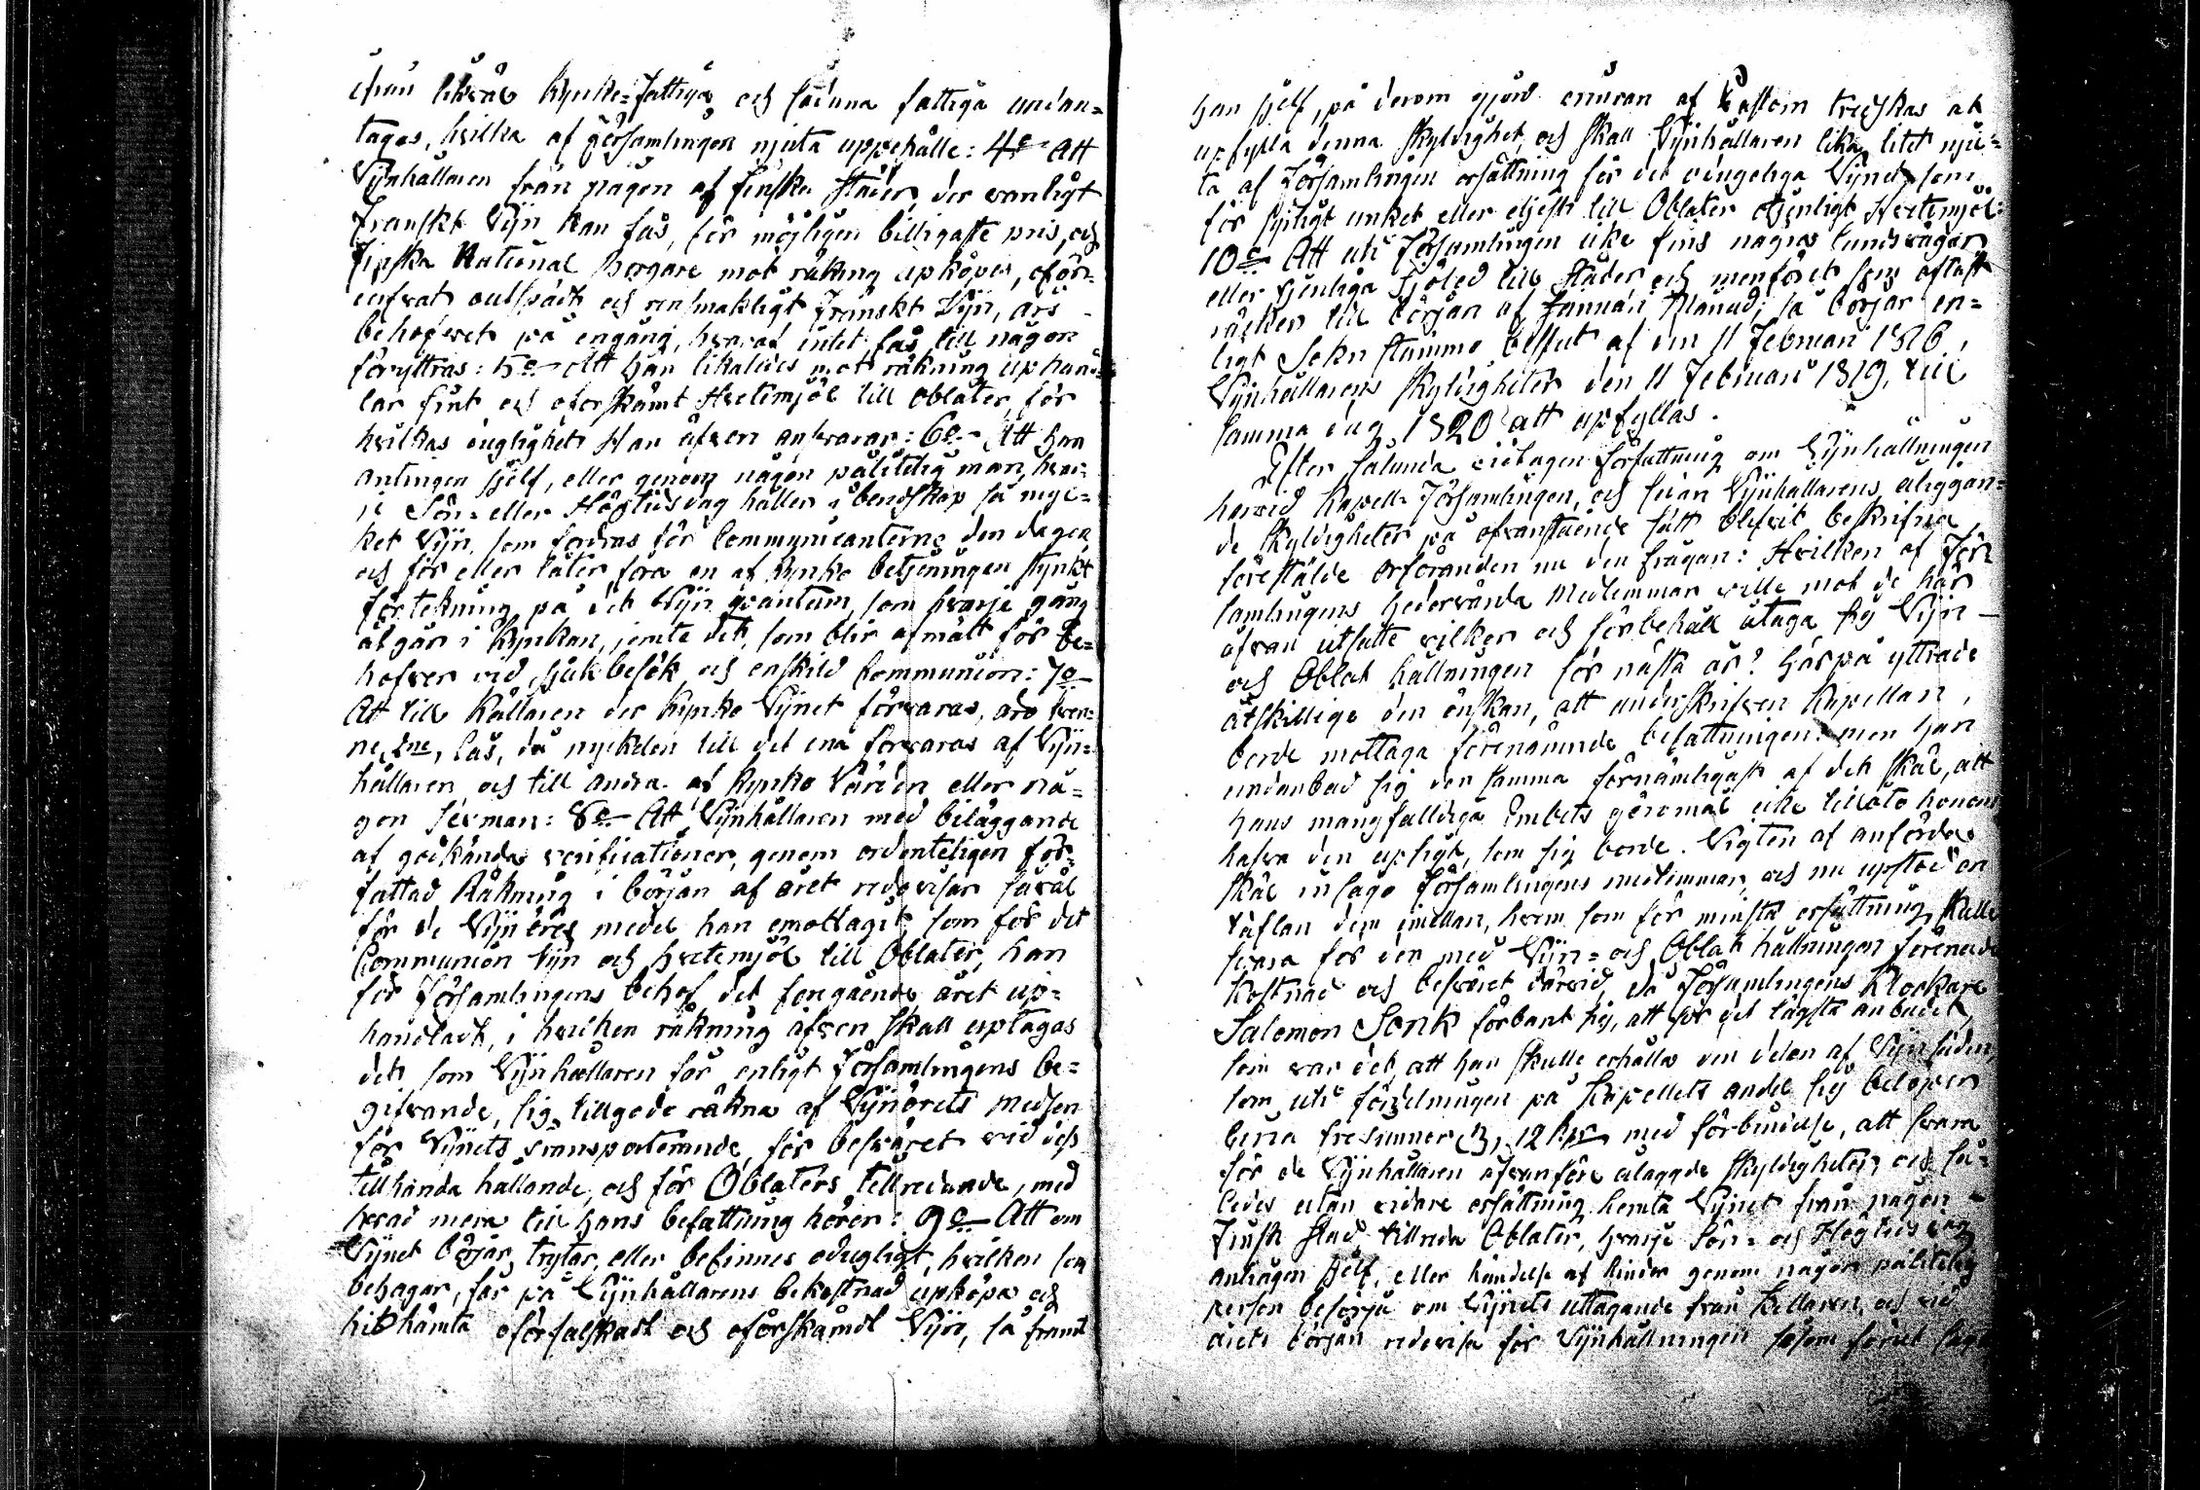 likväl Kyrko-Fattiga och sådana fattiga undan-
tages, hvilka af Församlingen njuta uppehälle: 4o Att
Vijnhållaren från någon af Finska Städer, der vanligt
Franskt Vijn kan fås, för möjligen billigaste pris, och
Finska National Borgare mot räkning upköper, oför-
och oensmakligt Franskt Vijn, års
behofvet på engång, hvaraf intet får till någon
föryttras: 5o Att han likaledes mot räkning uphand-
lar fint och oforskämt Hvetemjöl till Oblater, för
hvilkas duglighet Han äfven ansvarar: 6o Att han
antingen sjelf, eller genom någon pålitelig man, hvar-
je Sön- eller Högtidsdag håller i beredskap så myc-
ket Vijn, som fordras för Communicanterne den dagen
och för eller låter föra en af Kyrko betjeningen styrkt
förtekning på det Vijn qvantum, som hvarje gång
åtgår i Kyrkan, jemte det, som blir afmätt för be-
hofver vid sjukbesök och enskild Communion: 7o
Att till Källaren der Kyrko Vijnet förvaras, äro tven-
ne, 2ne, lås, då nyckelen till det ena förvaras af Vijn-
hållaren och till andra af Kyrko Värden eller nå-
gon Sexman: 8o Att Vijnhållaren med biläggande
af godkända verificationer, genom ordenteligen för-
fattad Räkning i början af året redovisar såväl
för de Vijnöres medel han emottagit, som för det
Communion Vijn och Hvetemjöl till Oblater, han
för Församlingens behof det föregående året up-
handladt, i hvilken räkning äfven skall uptagas
det som Vijnhållaren får enligt Församlingens be-
gifvande, sig tillgodo räkna af Vijnörets medlen
för Vijnets transporterande, för besväret vid dess
tillhanda hållande, och för Oblaters tillredande, med
hvad mera till hans befattning hörer: 9o Att om
Vijnet börjar tryta, eller befinnes odugligt, hvilken som
behagar, får på Vijnhållarens bekostnad upköpa och
hithämta oförfalskadt och oförskämdt Vijn, så framt
han sjelf, på derom gjord erinran af Pastorn tredskas at
upfylla denna skyldighet, och skall Vijnhållaren lika litet nju-
ta af Församlingen ersättning för det odugeliga Vijnet, som
för unket eller eljest till Oblater otjenligt Hvetemjöl:
10o Att uti Församlingen icke fins några landsvägar
eller tjenliga Sjöled till städer och menföret som oftast
räcker till början af Januari Månad; så börjar en-
ligt Sokn stämmo beslut af den 11 Februari 1816,
Vijnhållarens skyldigheter den 11 Februari 1819, till
samma dag 1820 att upfyllas.
Efter sålunda vidtagen författning om Vijnhållningen
härvid Kapell-Församlingen, och sedan Vijnhållarens åliggan-
de skyldigheter på ofvanstående sätt blefvit beskrifna,
förestälde Ordföranden nu den frågan: Hvilken af För-
samlingens hedervärda Medlemmar ville mot de här
ofvan utsatte vilkor och förbehåll åtaga sig Vijn-
och Oblat hållningen för nästa år? Härpå yttrade
åtskillige den önskan, att underskrifven Kapellan,
borde mottaga förenämnde befattningen: men han
undanbad sig den samma förnämligast af det skäl, att
hans mångfalldiga Embets göromål icke tillåto honom
hafva den upsigt, som sig borde. Vigten af anförde
skäl insågo Församlingens medlemmar, och nu upstod en
täflan dem imellan, hvem som för minsta ersättning skulle
svara för den med Vijn- och Oblat hållningen förenade
Kostnad och besväret därvid, då Församlingens Klockare
Salomon Sonk förbant sig, att för det lägsta anbudet,
som var det att han skulle erhålla den delen af Vijnsäden,
som uti fördelningen på Kapellets andel sig belöper
med förbindelse, att svara
för de Vijnhållaren ofvanföre ålaggde skyldigheter, och så-
ledes utan vidare ersättning hemta Vijnet från någon
Finsk Stad, tillreda Oblater, hvarje Sön- och Högtidsdag
antingen sjelf, eller i händelse af hinder genom någon pålitelig
person besörja om Vijnets uttagande från Kellaren, och vid
årets början redovisa för Vijnhållningen såsom förut